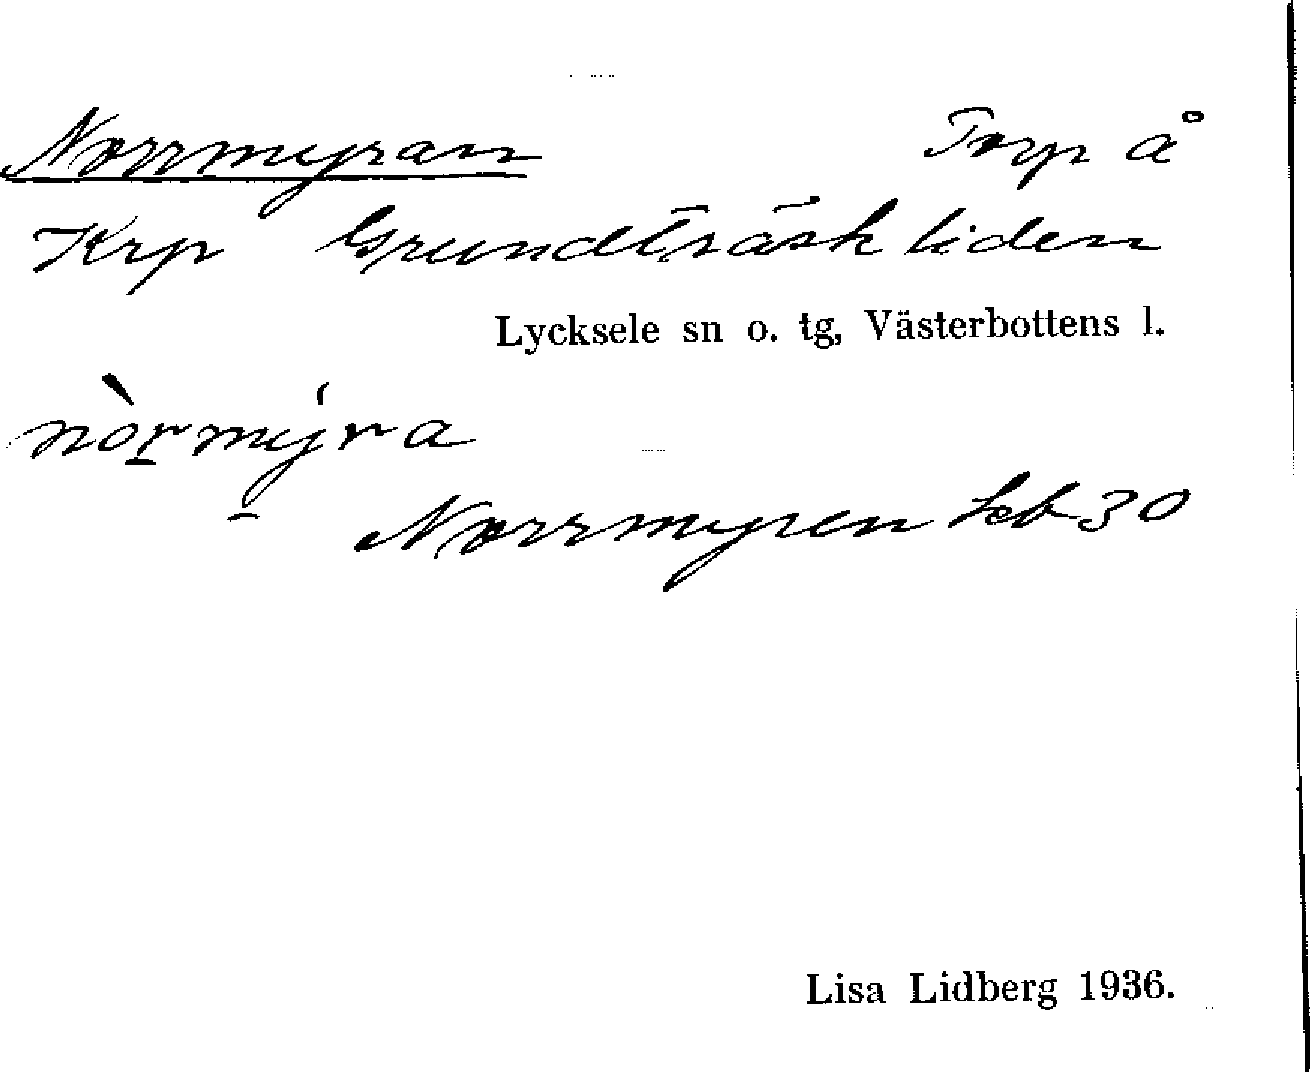 Norrmyran Torp å
Krp Grundträskliden
Lycksele sn o. tg, Västerbottens l.
nòr̲mýra
Norrmyren hfb 30
Lisa Lidberg 1936.